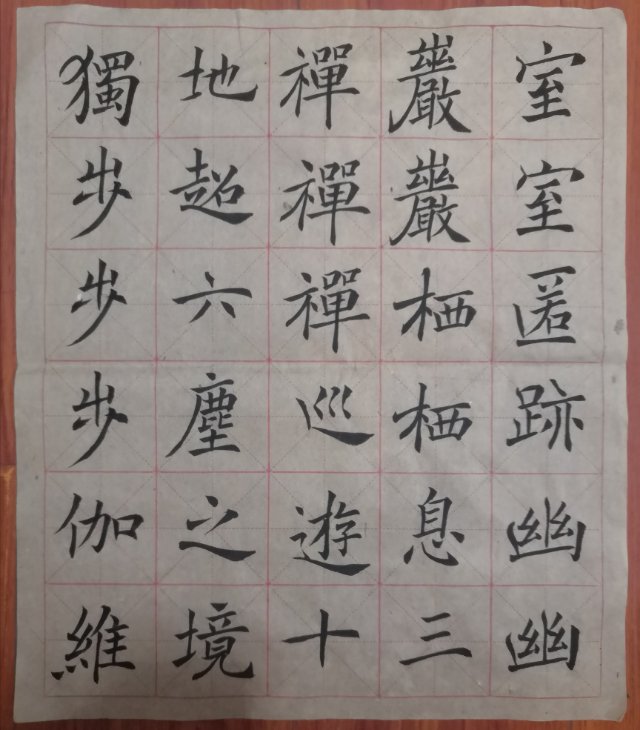 室室匿跡幽幽
巖巖栖栖息三
禪禪禪巡遊十
地超六塵之境
獨步步步伽維